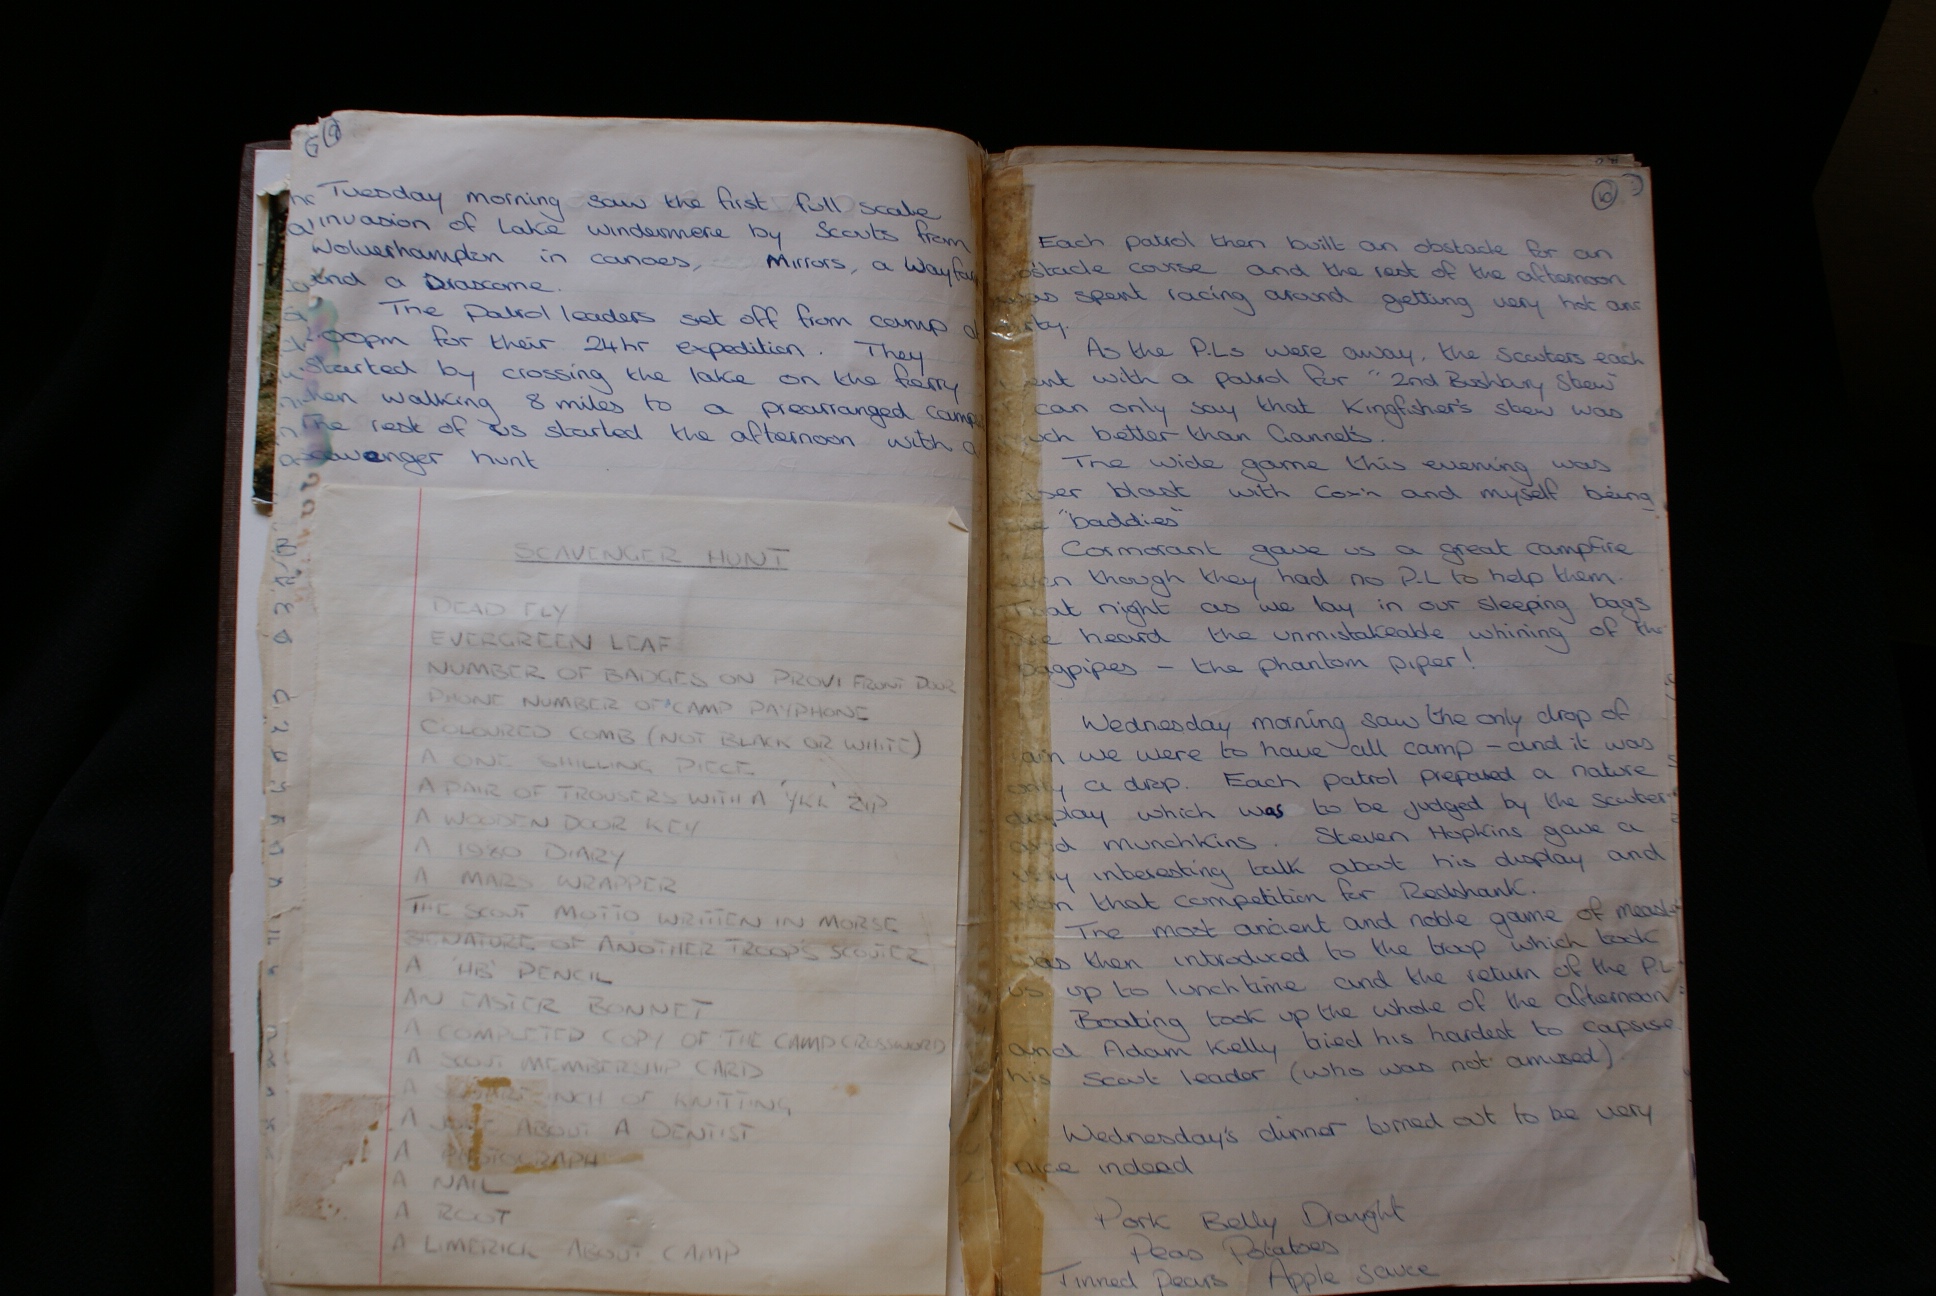 9
Tuesday morning saw the first full scale
invasion of Lake Windermere by Scouts from
Wolverhampton in canoes, Mirrors, a Wayfa
and a Drascome.
The Patrol leaders set off from camp
2.00pm for their 24hr expedition. They
started by crossing the lake on the ferry
then walking 8 miles to a prearranged camp
The rest of us started the afternoon with a
scavenger hunt
SCAVENGER HUNT
DEAD FLY
EVERGREEN LEAF
NUMBER OF BADGES ON PROVI FRONT DOOR
PHONE NUMBER OF CAMP PAYPHONE
COLOURED COMB (NOT BLACK OR WHITE)
A ONE SHILLING PIECE
A PAIR OF TROUSERS WITH A 'YKK' ZIP
A WOODEN DOOR KEY
A 1980 DIARY
A MARS WRAPPER
THE SCOUT MOTTO WRITTEN IN MORSE
SIGNATURE OF ANOTHER TROOPS SCOUTER
A 'HB' PENCIL
AN EASTER BONNET
A COMPLETED COPY OF THE CAMP CROSSWORD
A SCOUT MEMBERSHIP CARD
A INCH OF KNITTING
A JOKE ABOUT A DENTIST
A PHOTOGRAPH
A NAIL
A ROOT
A LIMERICK ABOUT CAMP
10
Each patrol then built an obstacle for an
obstacle course and the rest of the afternoon
was spent racing around getting very hot and
dirty.
As the P.Ls were away, the scouters each
went with a patrol for "2nd Bushbury Stew"
I can only say that Kingfisher's stew was
much better than Gannet's.
The wide game this evening was
laser blast with Cox'n and myself being
the "baddies"
Cormorant gave us a great campfire
even though they had no P.L to help them.
That night as we lay in our sleeping bags
we heard the unmistakeable whining of the
bagpipes – the phantom piper!
Wednesday morning saw the only drop of
rain we were to have all camp – and it was
only a drop. Each patrol prepared a nature
display which was to be judged by the scouter
and munchkins. Steven Hopkins gave a
very interesting talk about his display and
won that competition for Redshank.
The most ancient and noble game of
was then introduced to the troop which took
us up to lunchtime and the return of the P.L
Boating took up the whole of the afternoon
and Adam Kelly tried his hardest to capsise
his Scout leader (who was not amused).
Wednesday's dinner turned out to be very
nice indeed
Pork Belly Draught
Peas Potatoes
Tinned Pears Apple Sauce